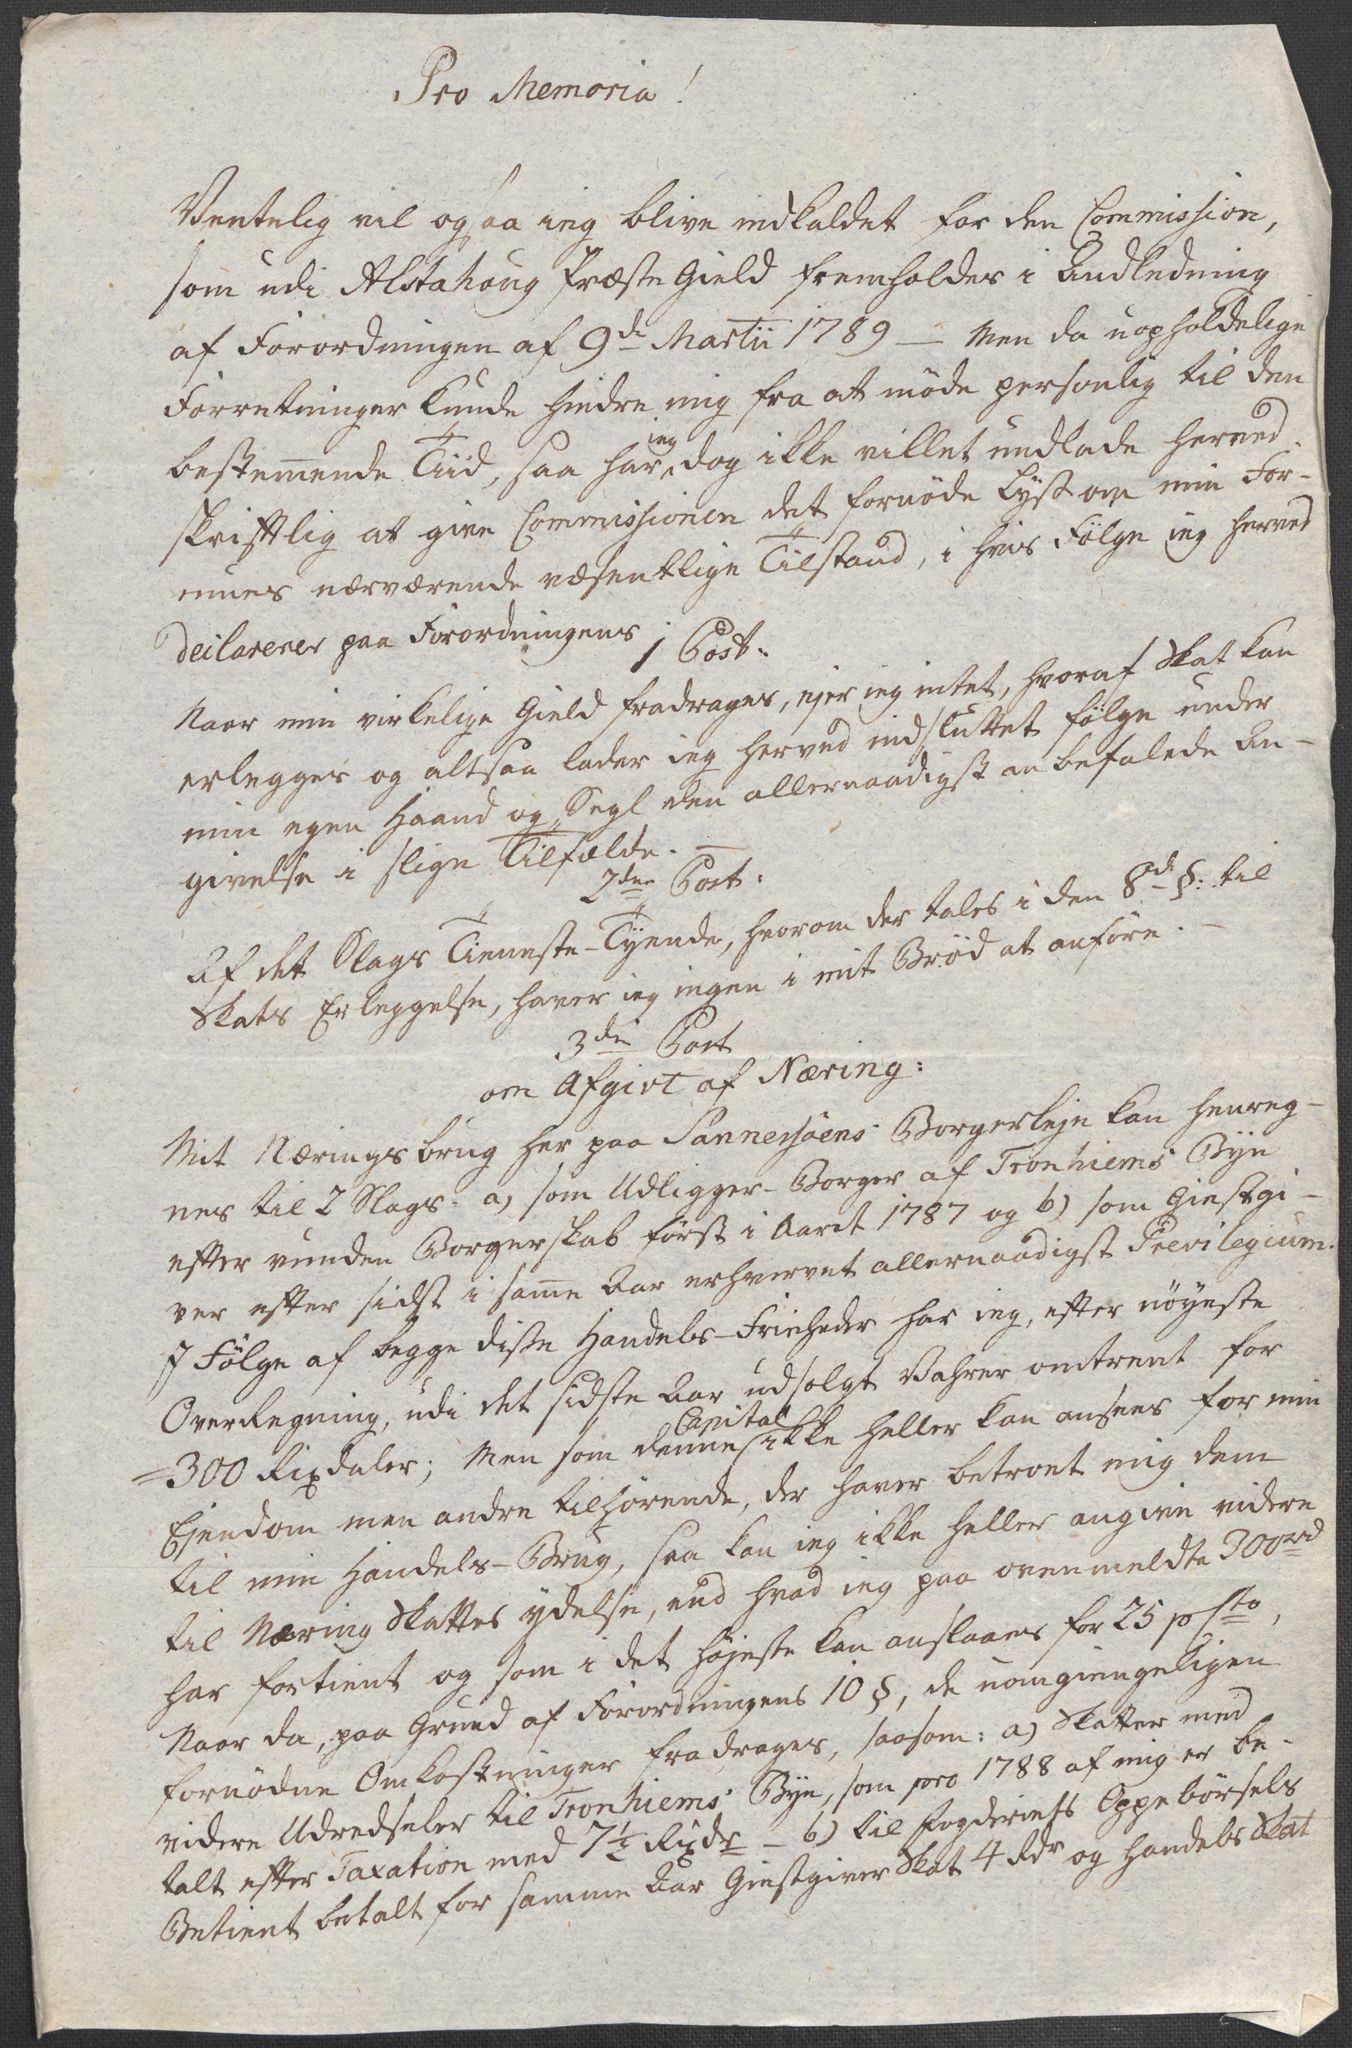 Pro Memoria!
Ventelig vil ogsaa ieg blive indkaldet for den Commission,
som udi Alstahoug Præste Gield fremholdes i Andledning
af Forordningen af 9de Martii 1789 — Men da uopholdelige
Forretninger kunde hindre mig fra at møde personlig til den
bestemende Tiid, saa har ieg dog ikke villet undlade herved
skriftlig at give Commissionen det fornøde Lyst om min For-
mues nærværende væsentlige Tilstand, i hvis Følge ieg herved
declarerer paa Forordningens
1 Post.
Naar min virkelige Gield fradrages, ejer ieg intet, hvoraf Skat kan
erlegges og altsaa lader ieg herved indsluttet følge under
min egen Haand og Segl den allernaadigst anbefalede An-
givelse i slige Tilfælde. —
2den Post:
Af det Slags Tieneste-Tyende, hvorom der tales i den 8de §: til
Skats Erleggelse, haver ieg ingen i mit Brød at anføre. —
3die Post
om Afgivt af Næring:
Mit Næringsbrug her paa Sannesjøens Borgerleje kan henreg-
nes til 2 Slags: a) som Udligger-Borger af Tronhiems Bye
efter vunden Borgerskab først i Aaret 1787 og b) som Giestgi-
ver efter sidst i samme Aar erhvervet allernaadigst Previlegium.
I Følge af begge disse Handels-Friheder har ieg, efter nøyeste
Overlegning, udi det sidste Aar udsolgt Vahrer omtrent for
=300 Rixdaler; Men som denne Capital ikke heller kan ansees for min
Ejendom men andre tilhørende, der haver betroet mig dem
til min Handels-Brug, saa kan ieg ikke heller angive videre
til Næring Skattes ydelse, end hvad ieg paa ovenmeldte 300rd
har fortient og som i det højeste kan anslaaes for 25 p Cto,
Naar da, paa Grund af Forordningens 10 §, de uomgiengeligen
fornødne Omkostninger fradrages, saasom: a) Skatter med
videre Udredseler til Tronhiems Bye, som pro 1788 af mig er be-
talt efter Taxation med 7½ Rixdr — b) til Fogderiets Oppebørsels
Betient betalt for samme Aar Giestgiver Skat 4 Rdr og Handels Skat